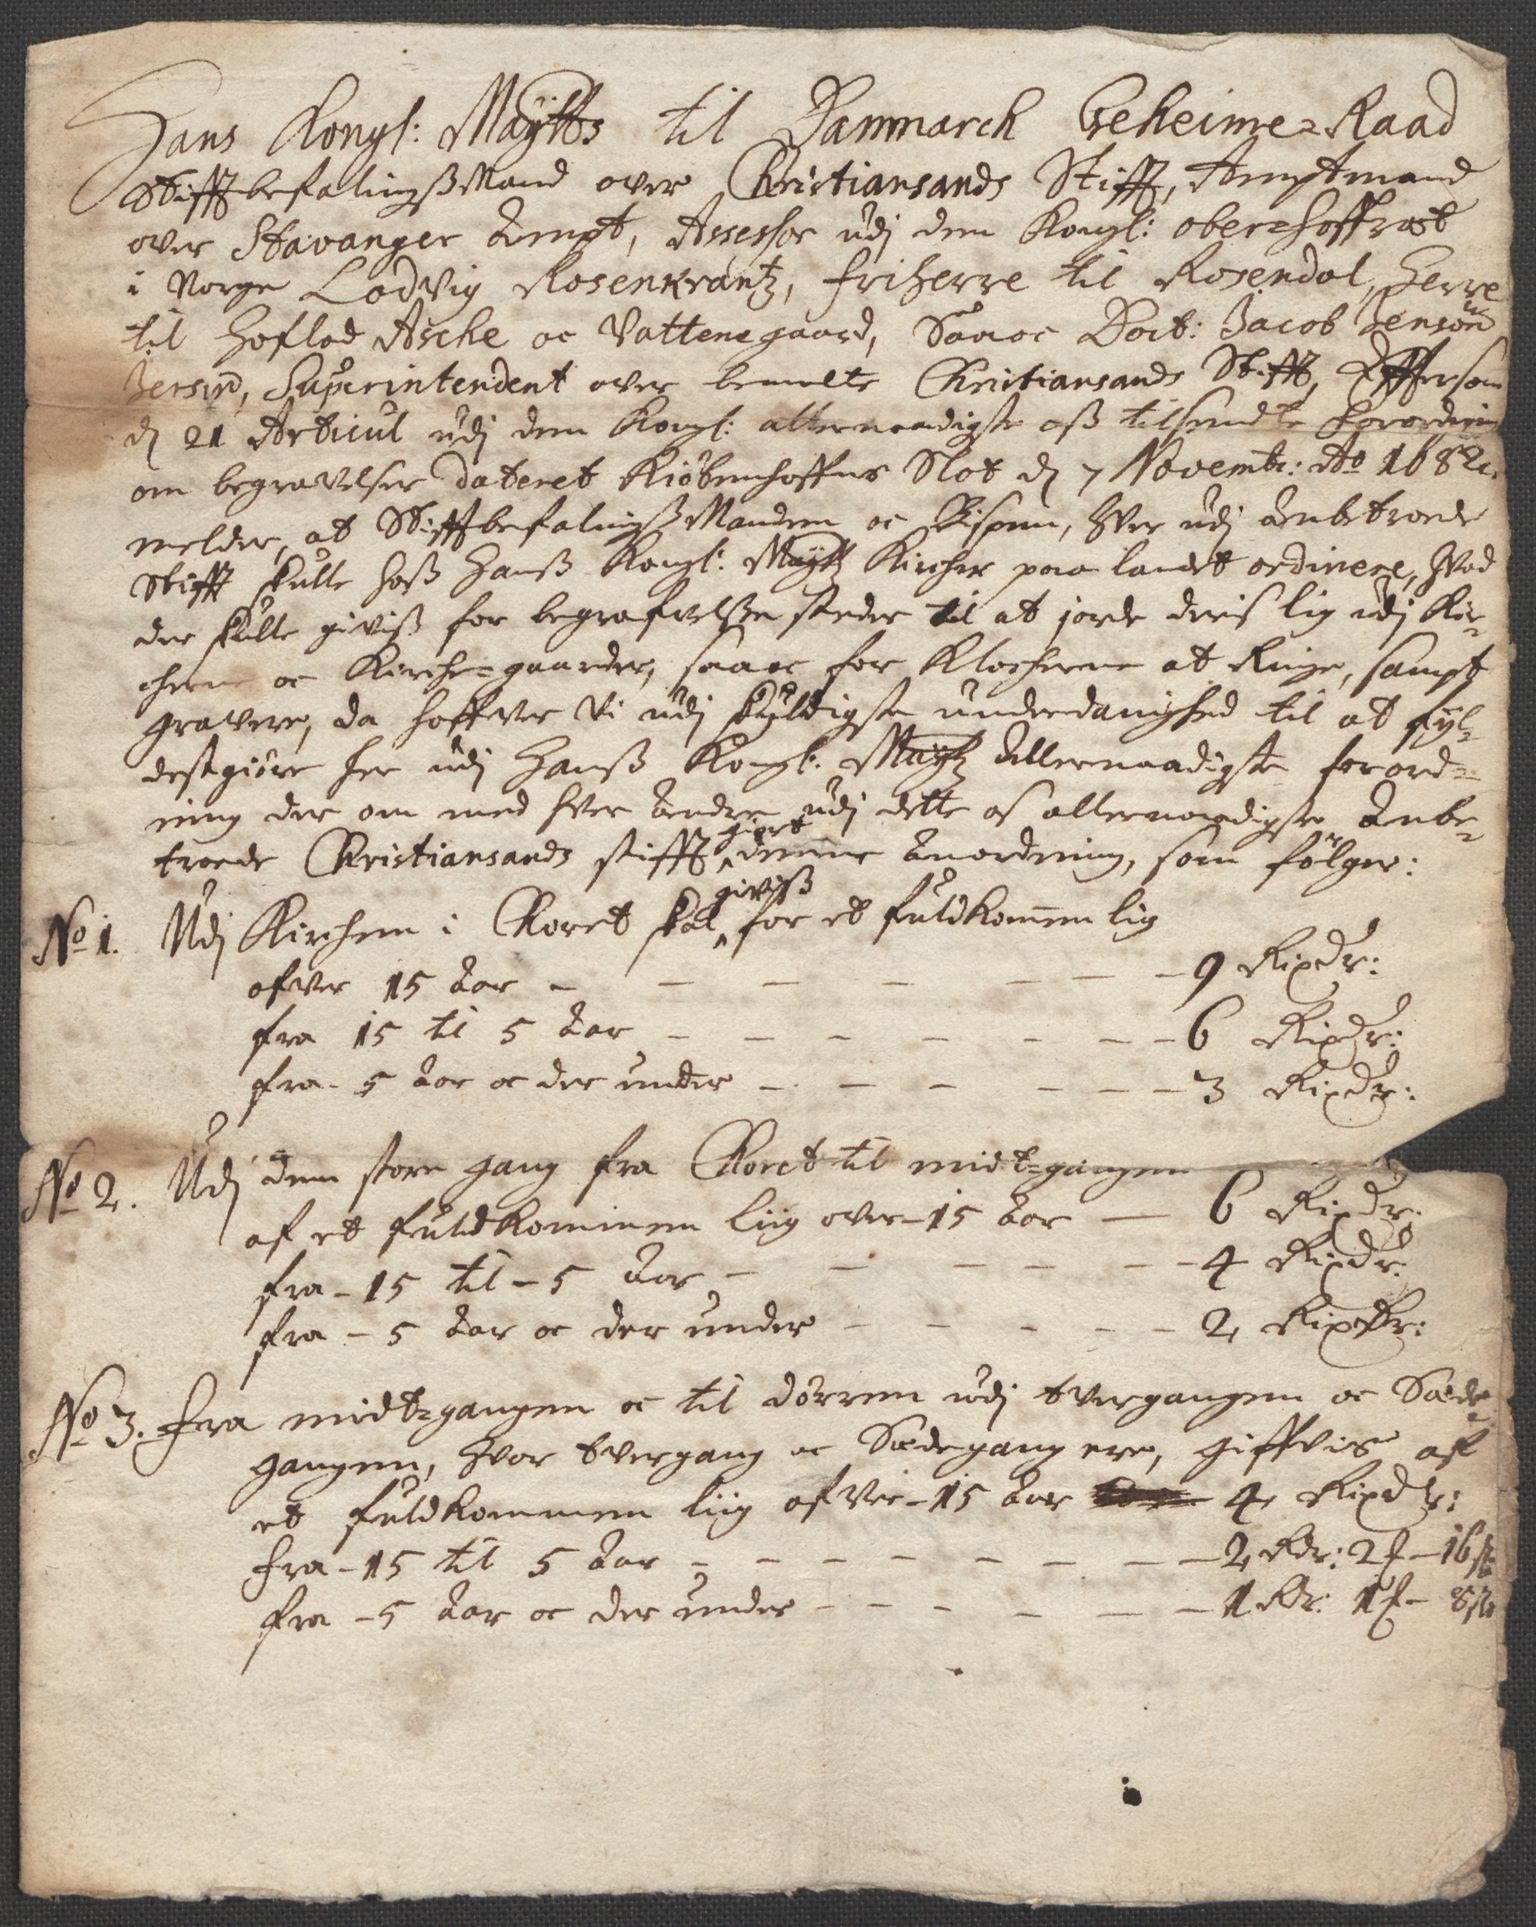 Hans Kongl: Maÿtts til Danmarck Geheime=Raad
Stifftbefalingßmand over Christiansands Stifft, Amptmand
over Stavanger Ampt, Assessor udj dem Kongl: ober=Hoffræt
i Norge Lodvig Rosenkrantz, friherre til Rosendal, Herre
til Hoflad Asche oc Vattene gaard, Saaoc Doct: Jacob Jenson
Jersin, Superintendent over bemelte Christiansands Stifft, Efftersom
dj 21 Articul udj dem Kongl: allernaadigste oß tilsendte forordning
om begravelser dateret Kiöbenhaffns Slot dj 7 Novembr: Ao 1682.
melder, at Stifftbefalingßmanden oc Bispen, hver udj Anbetroede
Stifft skulle hoß Hanß Kongl: Maÿtz Kircher paa landet ordinere, hvad
der skulle giviß for begrafvelße steder til at jorde deris lig udj Kir=
cherne oc Kirche=gaarder, saaoc for Klocherne at Ringe, sampt
gravere, da haffver vi udj skyldigste underdanighed til at fyl=
destgiöre her udj Hanß Kongl: Maÿtz Allernaadigste forord=
ning der om med hver Andre udj dette os allernaadigste Anbe=
troede Christiansands stifft giort denne Anordning, som fölger:
No 1. Udj Kirchen i Choret skal giviß for et fuldkommen lig
ofver 15 Aar - - - - - - 9 Rixdr:
fra 15 til 5 Aar - - - - - - 6 Rixdr:
fra - 5 Aar oc der under - - - - - - 3 Rixdr:
No 2. Udj dem store gang fra Choret til midt=gangen
af et fuldkommen liig over - 15 Aar - 6 Rixdr:
fra - 15 til - 5 Aar - - - - - - 4 Rixdr:
fra - 5 Aar oc der under - - - - - 2 Rixdr:
No 3. Fra midt=gangen oc til dörren udj tvergangen oc Sæde
gangen, hvor tvergang oc Sædegang ere, giffvis af
et fuldkommen liig ofver - 15 Aar 4 Rixdr:
fra - 15 til 5 Aar - - - - - - - 2 Rdr: 2 ƒ - 16 ß
fra - 5 Aar oc der under - - - - - - 1 Rdr: 1 ƒ - 8 ß